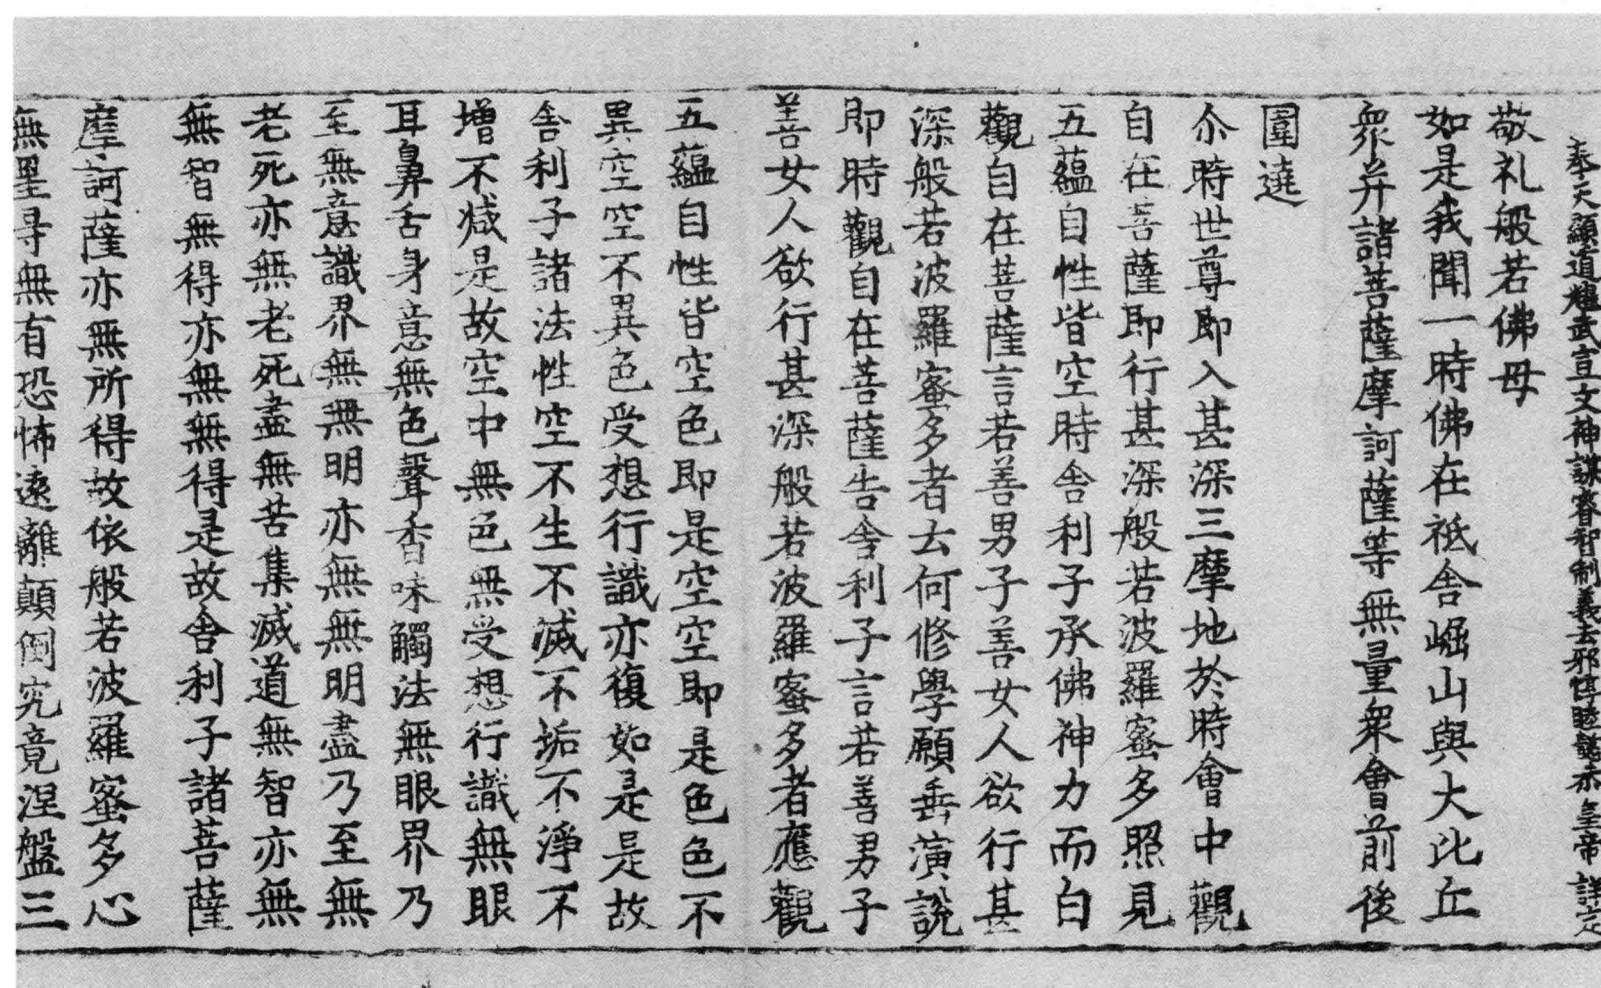 奉天顯道耀武宣文神謀睿智制義去邪惇睦懿恭皇帝 詳定
敬礼般若佛母
如是我聞一時佛在祇舍崛山與大比丘
衆并諸菩薩摩訶薩等無量衆會前後
圍遶
尒時世尊即入甚深三摩地於時會中觀
自在菩薩即行甚深般若波羅蜜多照見
五蘊自性皆空時舍利子承佛神力而白
觀自在菩薩言若善男子善女人欲行甚
深般若波羅蜜多者去何修學願垂演說
即時觀自在菩薩告舍利子言若善男子
善女人欲行甚深般若波羅蜜多者應觀
五蘊自性皆空色即是空空即是色色不
異空空不異色受想行識亦復如是是故
舍利子諸法性空不生不滅不垢不淨不
增不減是故空中無色無受想行識無眼
耳鼻舌身意無色聲香味觸法無眼界乃
至無意識界無無明亦無無明盡乃至無
老死亦無老死盡無苦集滅道無智亦無
無智無得亦無無得是故舍利子諸菩薩
摩訶薩亦無所得故依般若波羅蜜多心
無罣㝵無有恐怖遠離顛倒究竟涅盤三